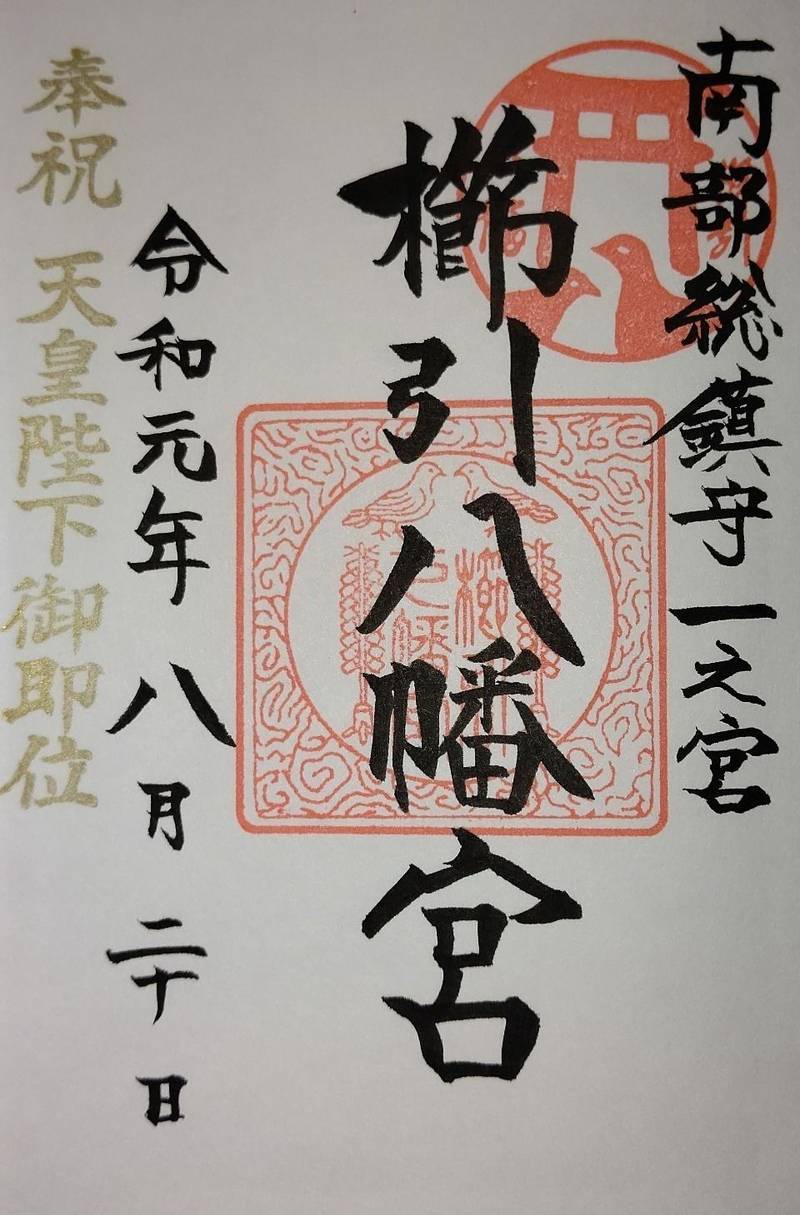 南部総鎮守一之宮
櫛引八幡宮
令和元年八月二十日
奉祝 天皇陛下御即位